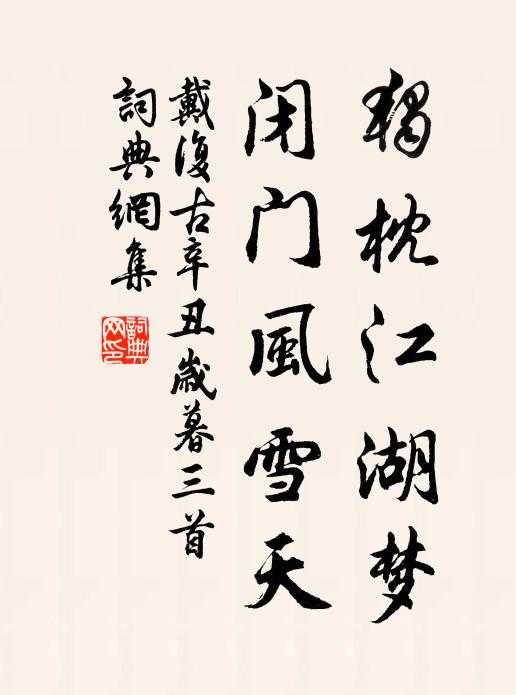 獨枕江湖梦
闭门風雪天
戴復古辛丑歲暮三首
詞典網集
詞典网印